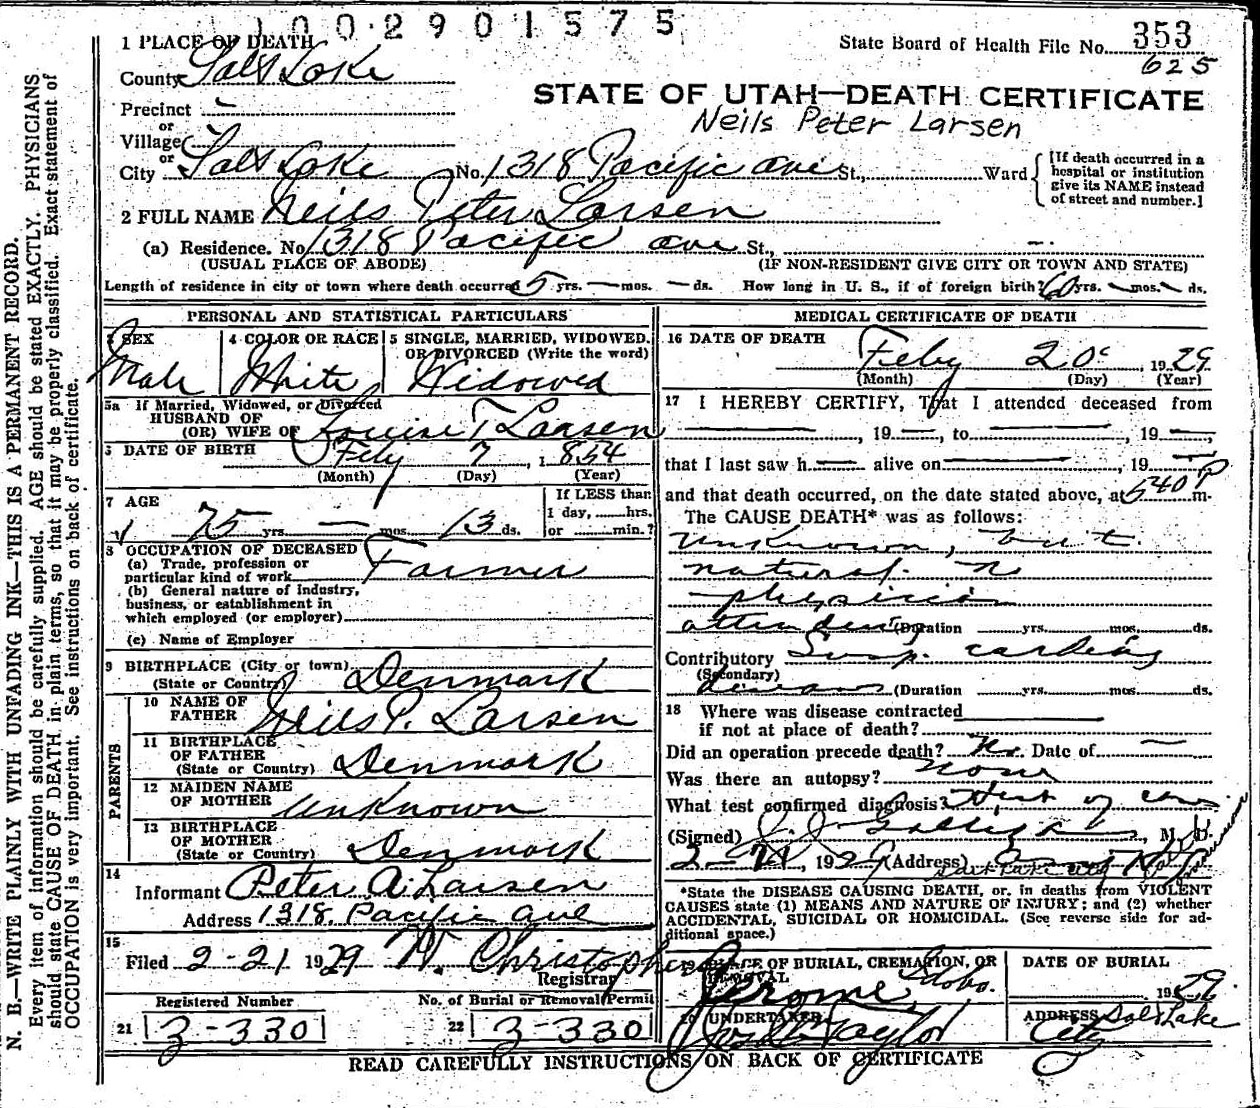 1002901575
1 PLACE OF DEATH
State Board of Health File No. 353
625
County Salt Lake
STATE OF UTAH—DEATH CERTIFICATE
Neils Peter Larsen
Precinct
or
Village
or
City Salt Lake No. 1318 Pacific ave St., Ward
[If death occurred in a
hospital or institution
give its NAME instead
of street and number.]
2 FULL NAME Neils Peter Larsen
(a) Residence. No. 1318 Pacific ave St.,
(USUAL PLACE OF ABODE) (IF NON-RESIDENT GIVE CITY OR TOWN AND STATE)
Length of residence in city or town where death occurred 5 yrs. — mos. — ds. How long in U. S., if of foreign birth? 60 yrs. — mos. — ds.
PERSONAL AND STATISTICAL PARTICULARS
3 SEX 4 COLOR OR RACE 5 SINGLE, MARRIED, WIDOWED.
OR DIVORCED (Write the word)
Male White Widowed
5a If Married, Widowed, or Divorced
HUSBAND OF
(OR) WIFE OF Louise T Larsen
6 DATE OF BIRTH Feby 7, 1854
(Month) (Day) (Year)
7 AGE
75 yrs. — mos. 13 ds.
If LESS than
1 day, ......hrs.
or ......min.?
8 OCCUPATION OF DECEASED
(a) Trade, profession or
particular kind of work Farmer
(b) General nature of Industry,
business, or establishment in
which employed (or employer)
(c) Name of Employer
9 BIRTHPLACE (City or town)
(State or Country) Denmark
PARENTS
10 NAME OF
FATHER Neils P. Larsen
11 BIRTHPLACE
OF FATHER
(State or Country) Denmark
12 MAIDEN NAME
OF MOTHER Unknown
13 BIRTHPLACE
OF MOTHER
(State or Country) Denmark
14
Informant Peter A. Larsen
Address 1318 Pacific Ave
15
Filed 2-21 1929
Registrar
Registered Number No. of Burial or Removal Permit
21 3-330 22 3-330
MEDICAL CERTIFICATE OF DEATH
16 DATE OF DEATH
Feby 20, 1929
(Month) (Day) (Year)
17 I HEREBY CERTIFY, That I attended deceased from
—, 19—, to —, 19—,
that I last saw h— alive on —, 19—
and that death occurred, on the date stated above, at 540 P m.
The CAUSE DEATH* was as follows:
Unknown, but
natural. No
physician
attending (Duration yrs. mos. ds.
Contributory Susp. cardiac
(Secondary)
disease (Duration yrs. mos. ds.
18 Where was disease contracted
if not at place of death?
Did an operation precede death? No. Date of —
Was there an autopsy? None
What test confirmed diagnosis?
(Signed) M. D.
1929 (Address)
Salt Lake City
*State the DISEASE CAUSING DEATH, or, in deaths from VIOLENT
CAUSES state (1) MEANS AND NATURE OF INJURY; and (2) whether
ACCIDENTAL, SUICIDAL OR HOMICIDAL. (See reverse side for ad-
ditional space.)
19 PLACE OF BURIAL, CREMATION, OR
REMOVAL
Jerome Idaho.
DATE OF BURIAL
1929
20 UNDERTAKER
Taylor
ADDRESS Salt Lake
City
READ CAREFULLY INSTRUCTIONS ON BACK OF CERTIFICATE
N. B.—WRITE PLAINLY WITH UNFADING INK—THIS IS A PERMANENT RECORD.
Every item of information should be carefully supplied. AGE should be stated EXACTLY. PHYSICIANS
should state CAUSE OF DEATH in plain terms, so that it may be properly classified. Exact statement of
OCCUPATION is very important. See instructions on back of certificate.